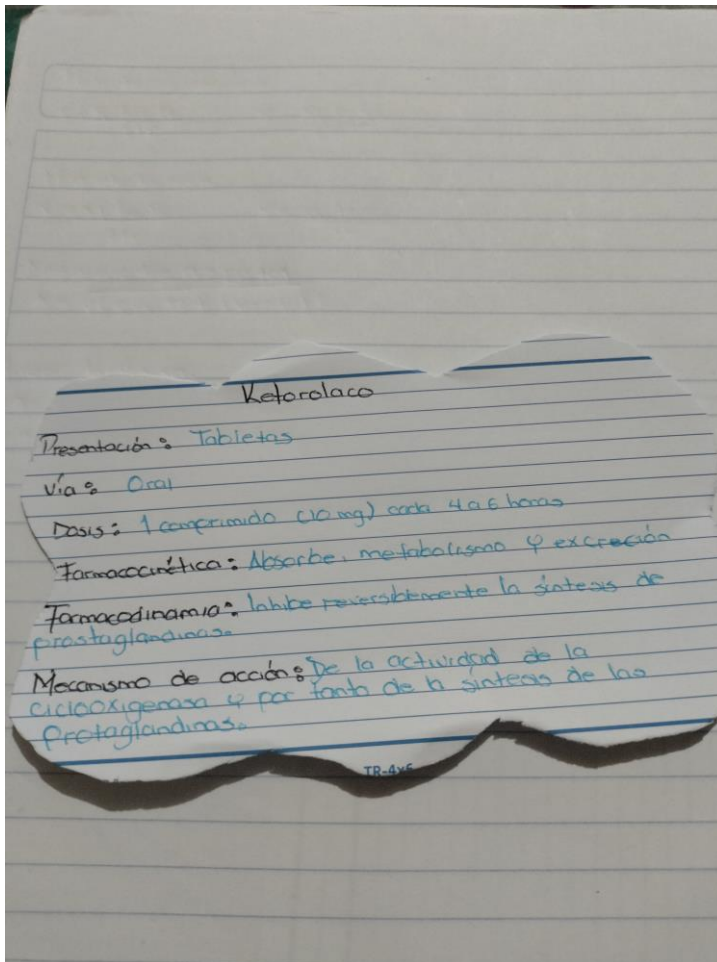 Ketorolaco
Presentación: Tabletas
Vía: Oral
Dosis: 1 comprimido (10 mg) cada 4 a 6 horas
Farmacocinética: Absorbe, metabolismo y excreción
Farmacodinamia: Inhibe reversiblemente la síntesis de
prostaglandinas.
Mecanismo de acción: De la actividad de la
ciclooxigenasa y por tanto de la síntesis de las
Protaglandinas.
TR-4x6